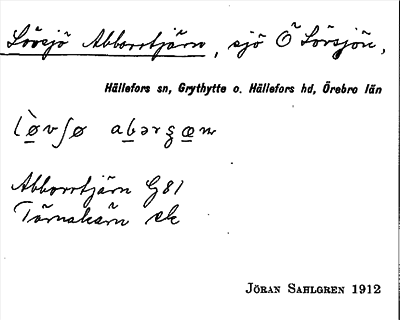 Lövsjö Abborrtjärn, sjö Ö Lövsjön,
Hällefors sn, Grythytte o. Hällefors hd, Örebro län
Abborrtjärn G81
Tärnakärn ek
JÖRAN SAHLGREN 1912